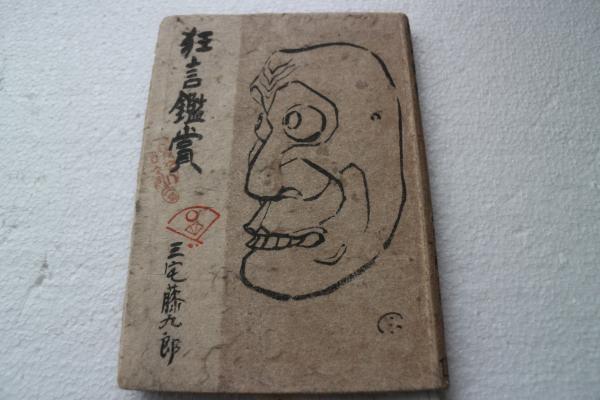 狂言鑑賞
三宅藤九郎